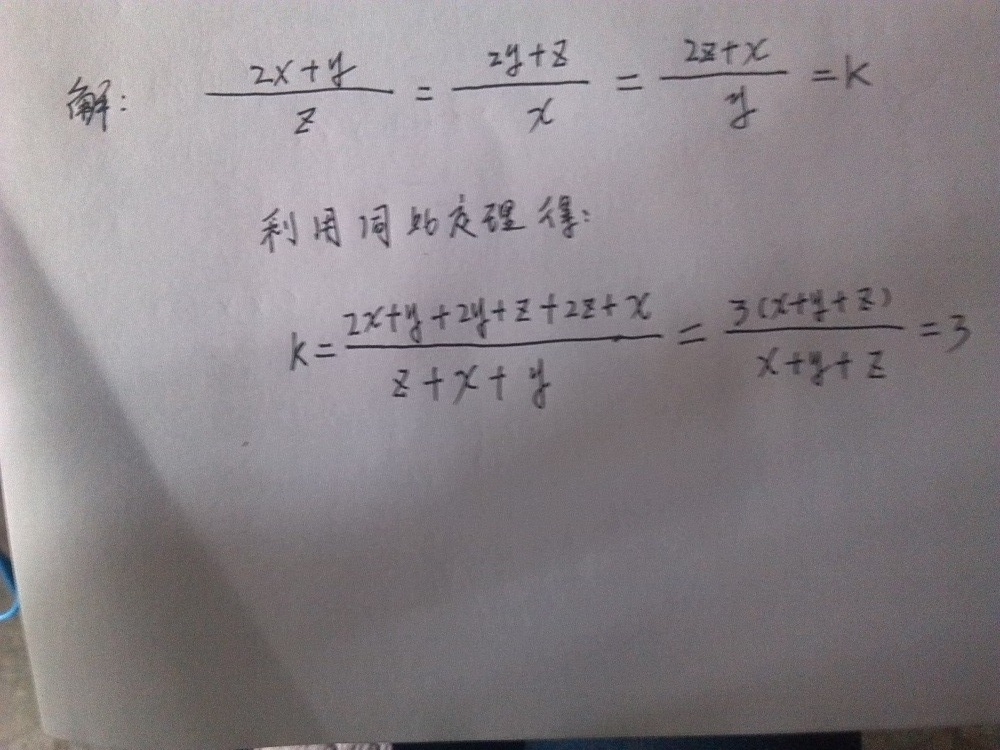 解: (2x+y)/z = (2y+z)/x = (2z+x)/y = k
利用同比定理得:
k = (2x+y+2y+z+2z+x)/(z+x+y) = 3(x+y+z)/(x+y+z) = 3